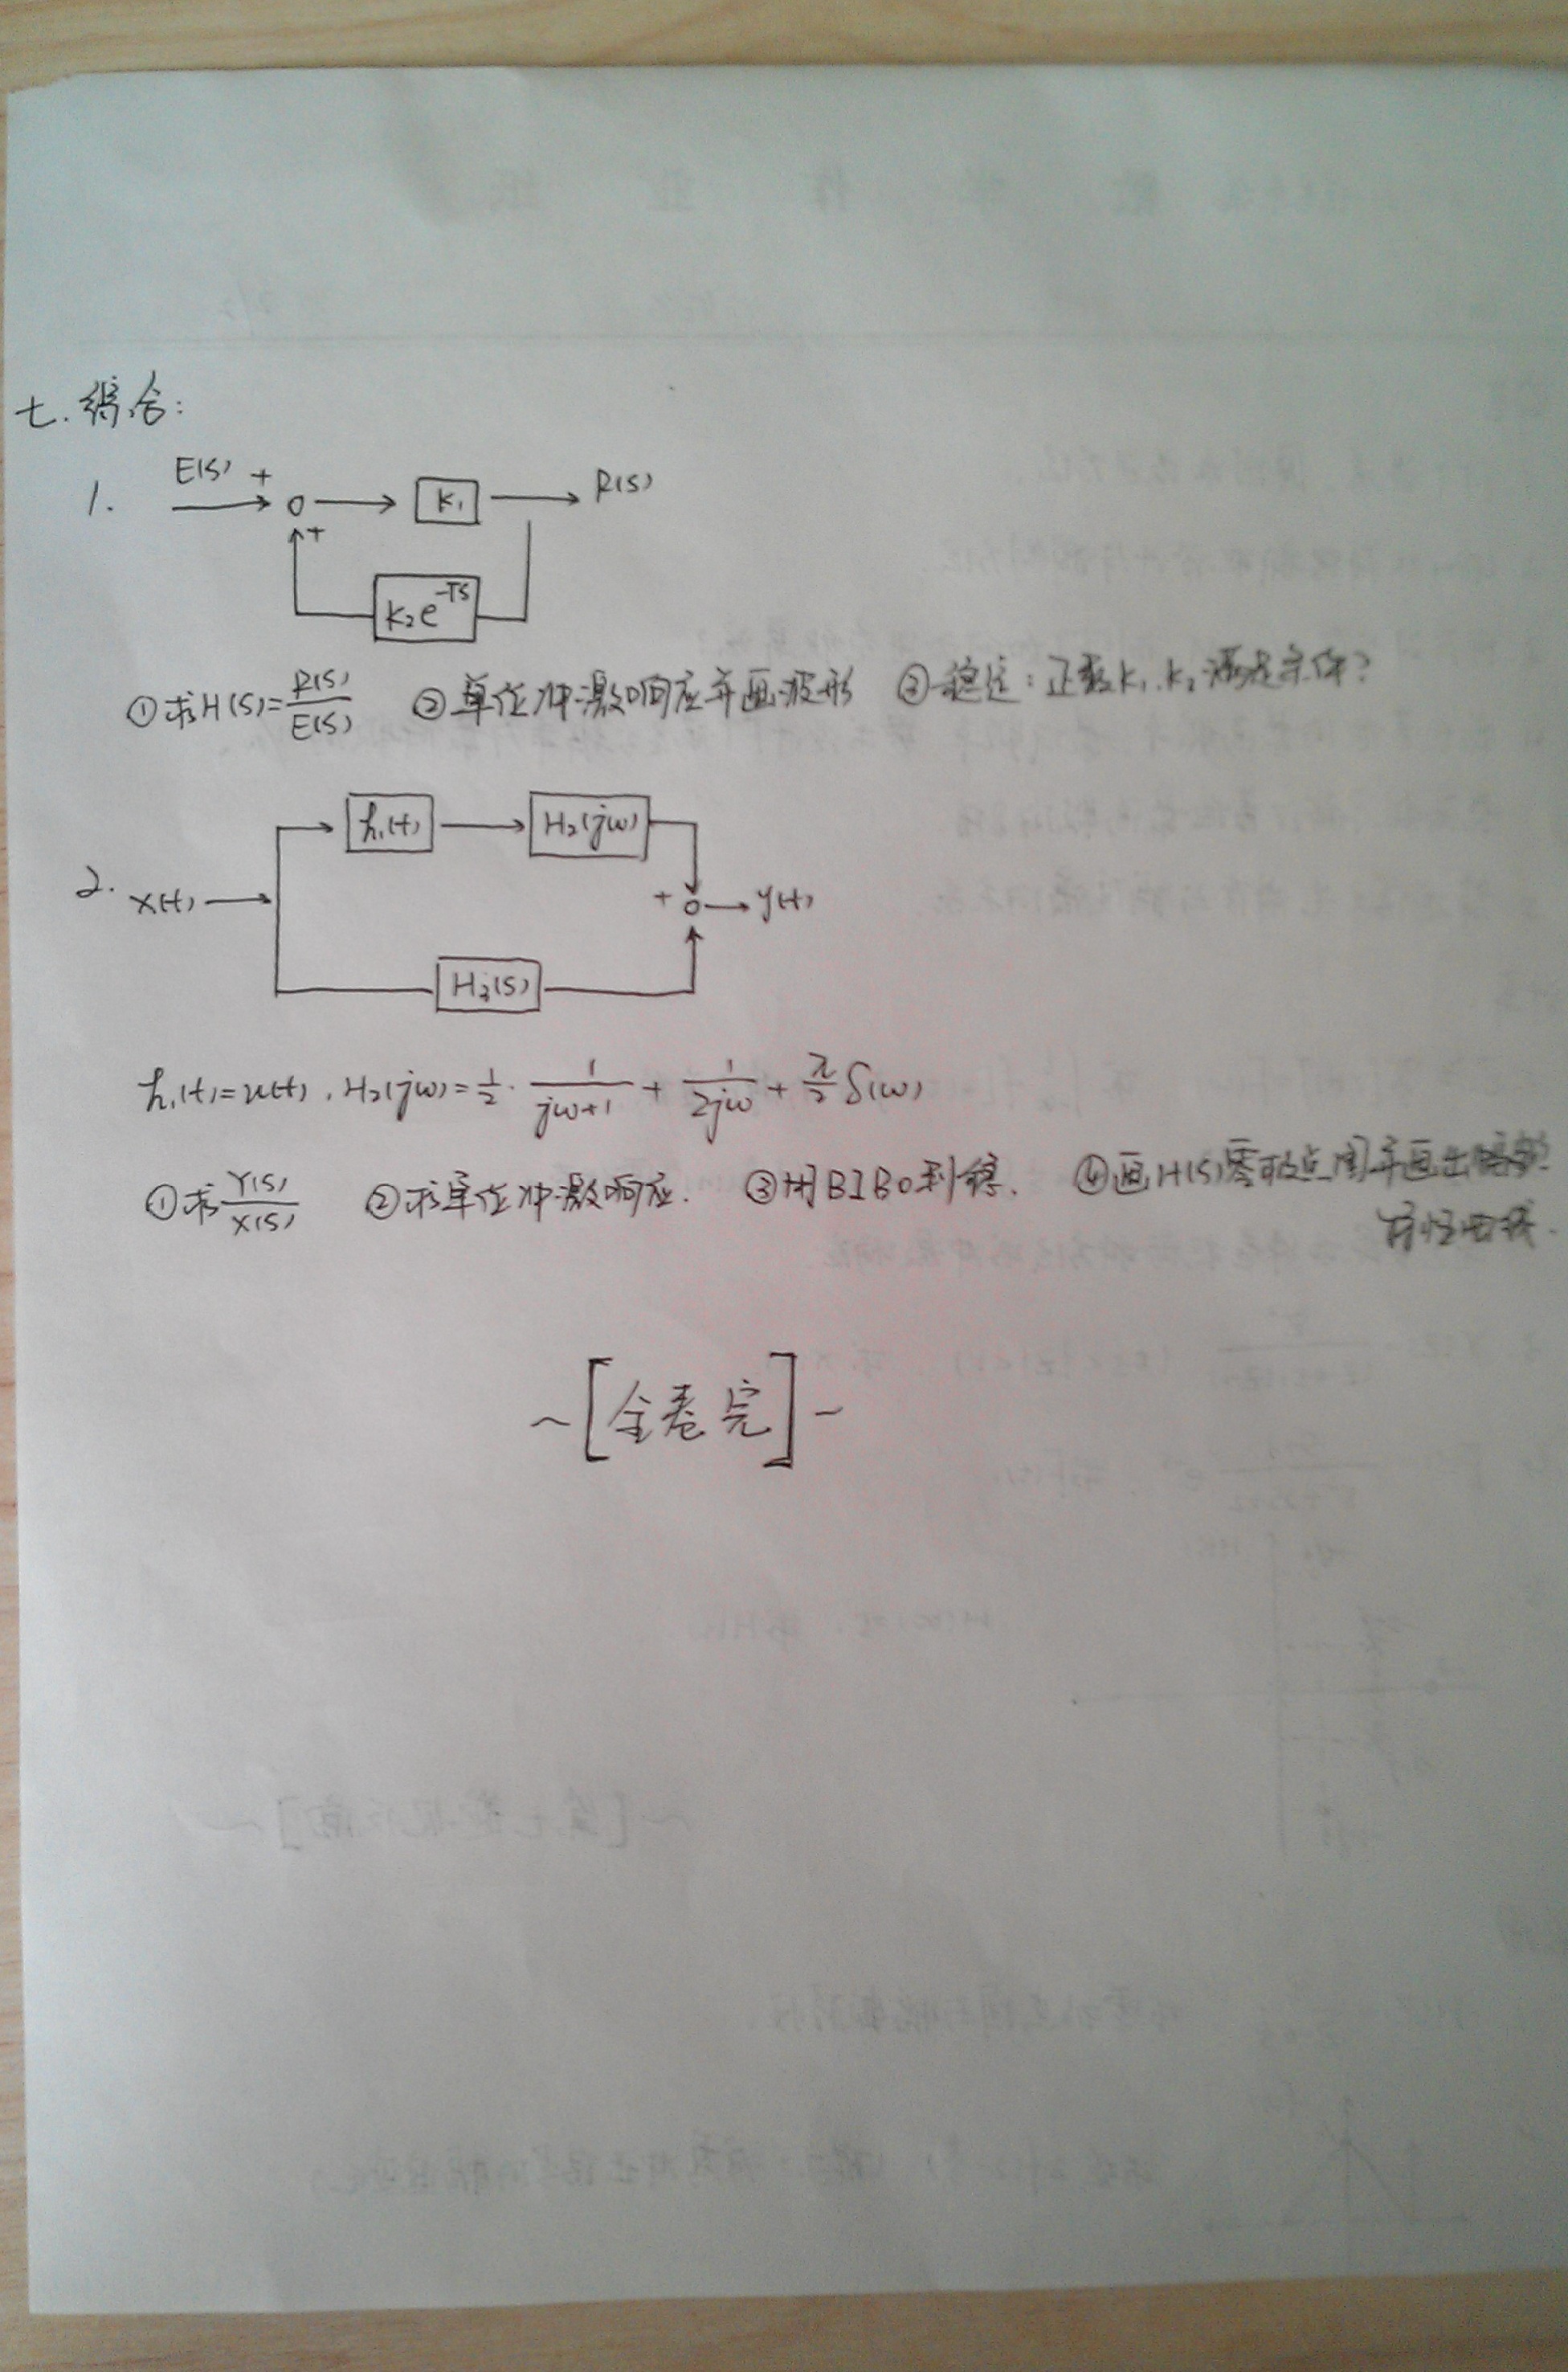 七.综合:
1. E(s) + K₁ R(s)
+
K₂e^{-Ts}
①求H(s)=R(s)/E(s) ②单位冲激响应并画波形 ③稳定:正数K₁.K₂满足条件?
h₁(t) H₂(jω)
2. x(t) + y(t)
H₃(s)
h₁(t)=u(t), H₂(jω)=1/2·1/(jω+1)+1/(2jω)+π/2 δ(ω)
①求Y(s)/X(s) ②求单位冲激响应. ③用BIBO判稳. ④画H(s)零极点图并画出幅频
特性曲线.
~[全卷完]~